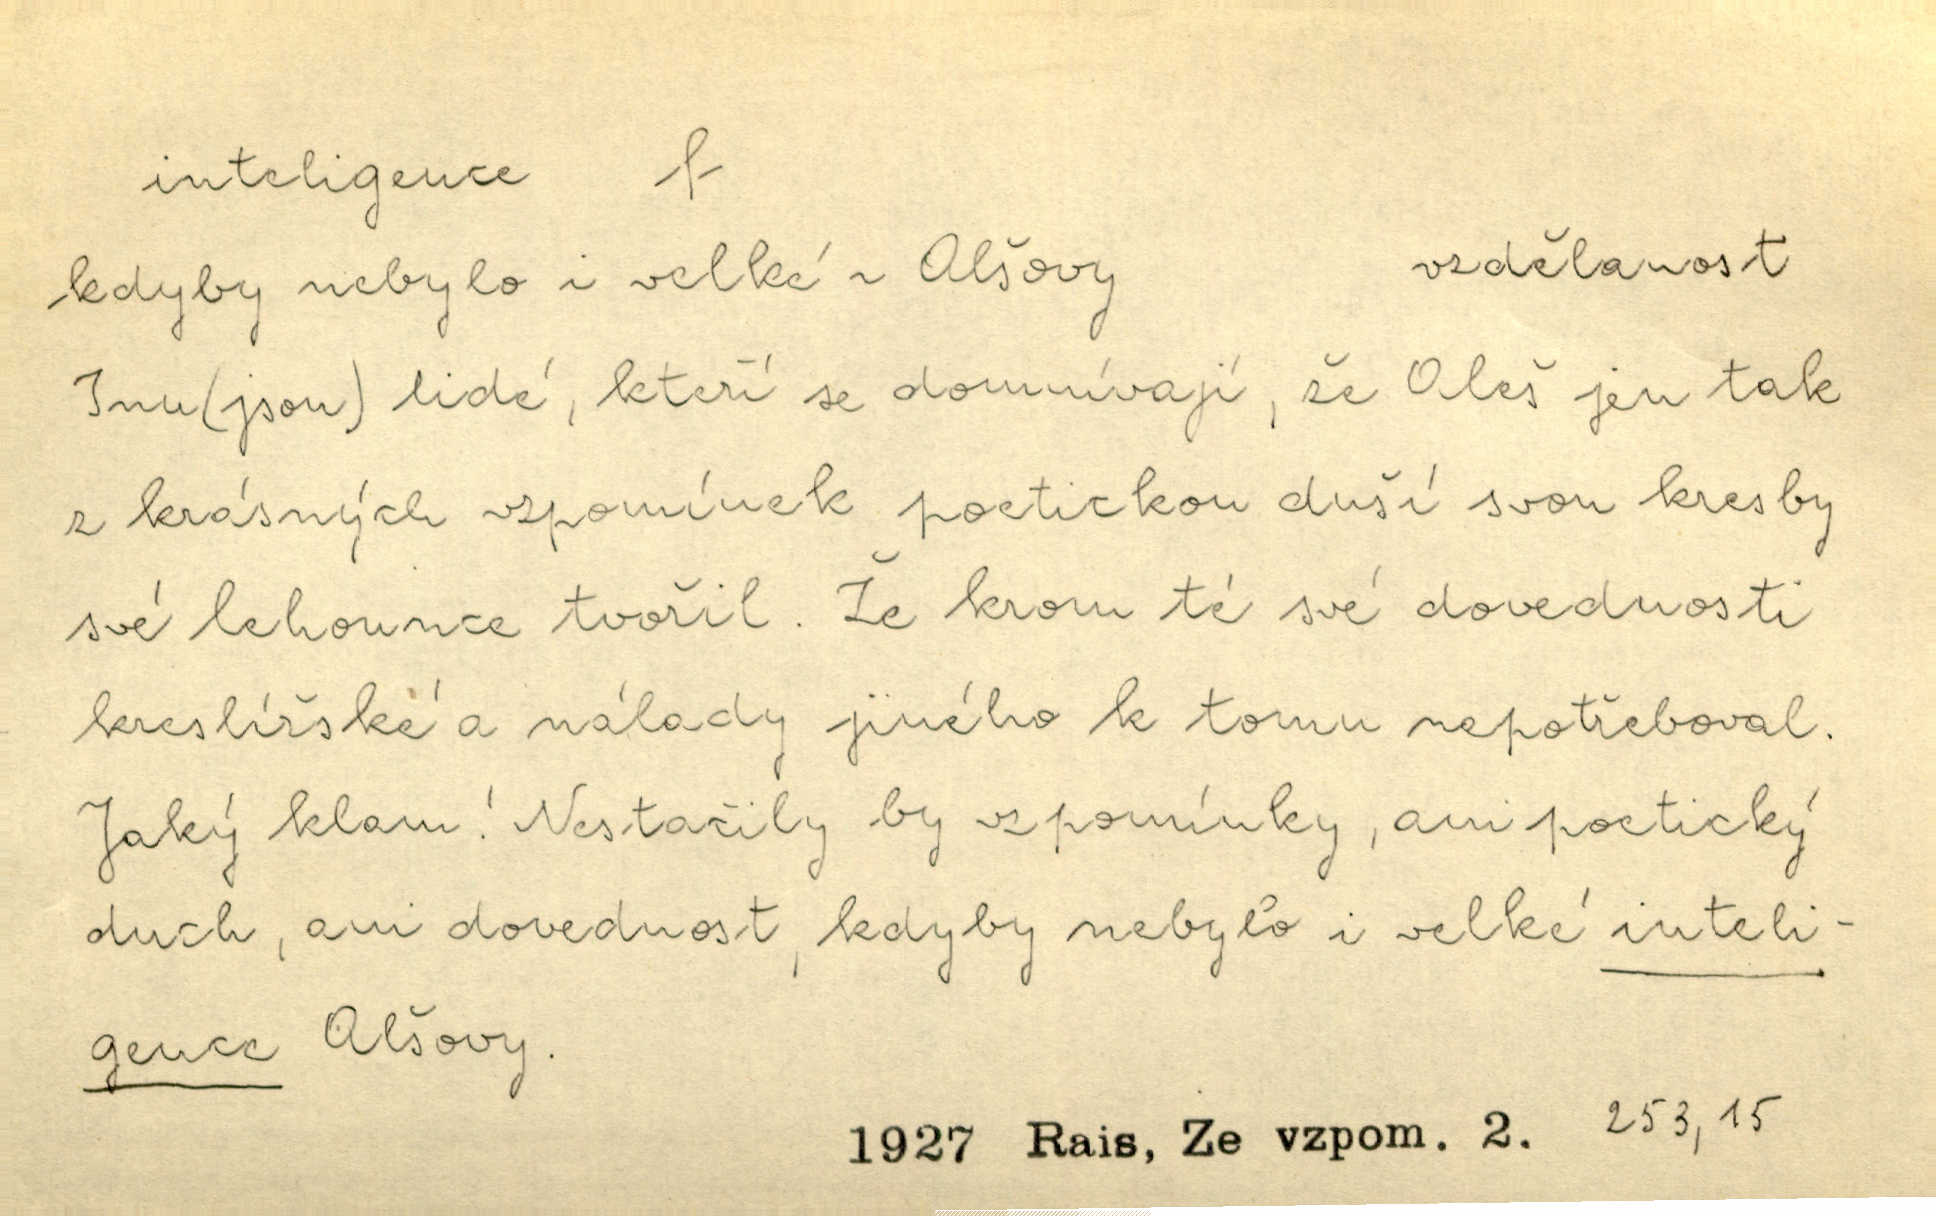 inteligence f
kdyby nebylo i velké ~ Alšovy vzdělanost
Inu (jsou) lidé, kteří se domnívají, že Aleš jen tak
z krásných vzpomínek poetickou duší svou kresby
své lehounce tvořil. Že krom té své dovednosti
kreslířské a nálady jiného k tomu nepotřeboval.
Jaký klam! Nestačily by vzpomínky, ani poetický
duch, ani dovednost, kdyby nebylo i velké inteli-
gence Alšovy.
1927 Rais, Ze vzpom. 2. 253,15